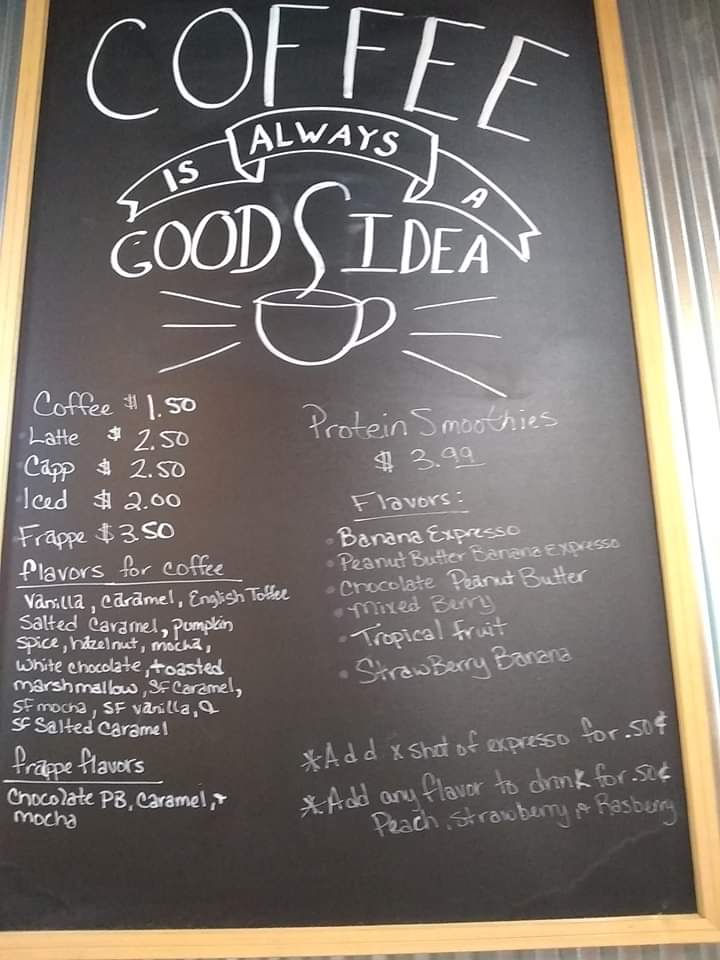 COFFEE
IS ALWAYS A
GOOD IDEA
Coffee $ 1.50
Latte $ 2.50
Capp $ 2.50
Iced $ 2.00
Frappe $3.50
flavors for coffee
Vanilla, caramel, English Toffee
Salted Caramel, pumpkin
spice, hazelnut, mocha,
white chocolate, toasted
marshmallow, SF Caramel,
SF mocha, SF vanilla, &
SF Salted Caramel
frappe flavors
Chocolate PB, Caramel, +
mocha
Protein Smoothies
$ 3.99
Flavors:
• Banana Expresso
• Peanut Butter Banana Expresso
• Chocolate Peanut Butter
• Mixed Berry
• Tropical fruit
• StrawBerry Banana
*Add x shot of expresso for .50¢
*Add any flavor to drink for .50¢
Peach, Strawberry & Rasberry